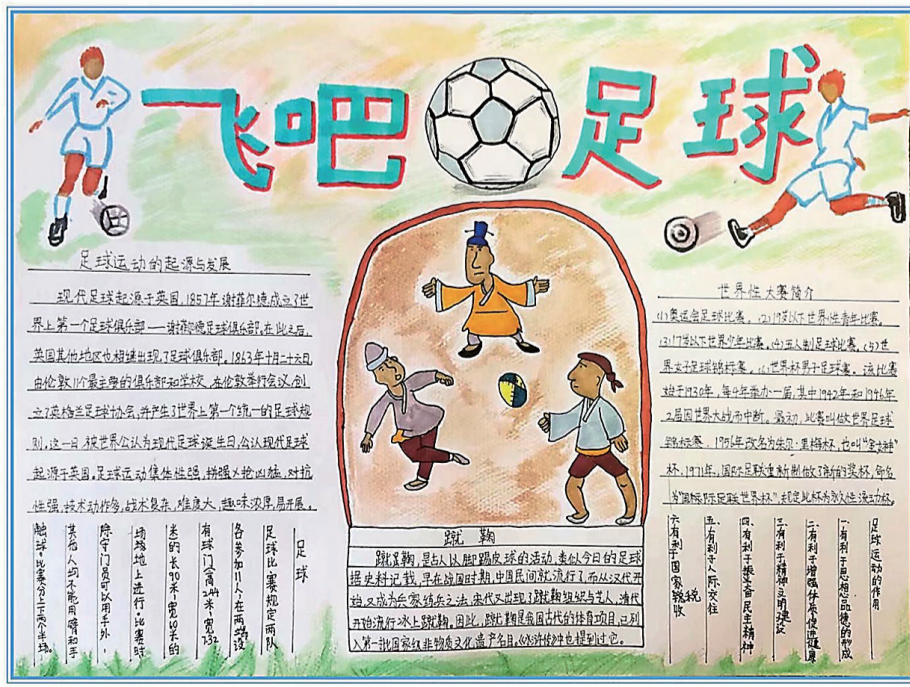 飞吧足球
足球运动的起源与发展
现代足球起源于英国,1857年谢菲尔德成立了世
界上第一个足球俱乐部——谢菲尔德足球俱乐部,在此之后,
英国其他地区也相继出现了足球俱乐部。1863年十月二十六日,
由伦敦11个最主要的俱乐部和学校,在伦敦举行会议,创
立了英格兰足球协会,并产生了世界上第一个统一的足球规
则。这一日,被世界公认为现代足球诞生日,公认现代足球
起源于英国。足球运动集体性强,拼强义抢凶猛,对抗
性强,技术动作多,战术复杂,难度大,趣味浓厚,易开展。
足球
足球比赛规定两队
各参加11人,在两端设
有球门(高2.44米,宽7.32
米的长90米,宽60米的
场球地上进行。比赛时
除守门员可以用手外,
其他人均不能用臂和手
触球。比赛分上下两个半场。
蹴鞠
蹴鞠,是古人以脚踢皮球的活动,类似今日的足球
据史料记载,早在战国时期,中国民间就流行了,而从汉代开
始,又成为兵家练兵之法,宋代又出现了蹴鞠组织与艺人,清代
开始流行冰上蹴鞠。因此,蹴鞠是我国古代的体育项目,已列
入第一批国家级非物质文化遗产名目。《水浒传》中也提到过它。
世界性大赛简介
(1)奥运会足球比赛。(2)19岁以下世界性青年比赛。
(3)17岁以下世界少年比赛。(4)五人制足球比赛。(5)世
界女子足球锦标赛。(6)世界杯男子足球赛。该比赛
始于1930年,每4年举办一届,其中1942年和1946年
2届因世界大战而中断。最初,比赛叫做世界足球
锦标赛,1956年改名为朱尔·里梅杯,也叫"金女神"
杯,1971年,国际足联重新制做了新的奖杯,命名
为"国际足联世界杯",规定此杯为永久性流动杯。
足球运动的作用
一、有利于思想品德的形成
二、有利于增强体质促进健康
三、有利于精神文明建设
四、有利于振奋民主精神
五、有利于人际交往
六、有利于国家税收
税